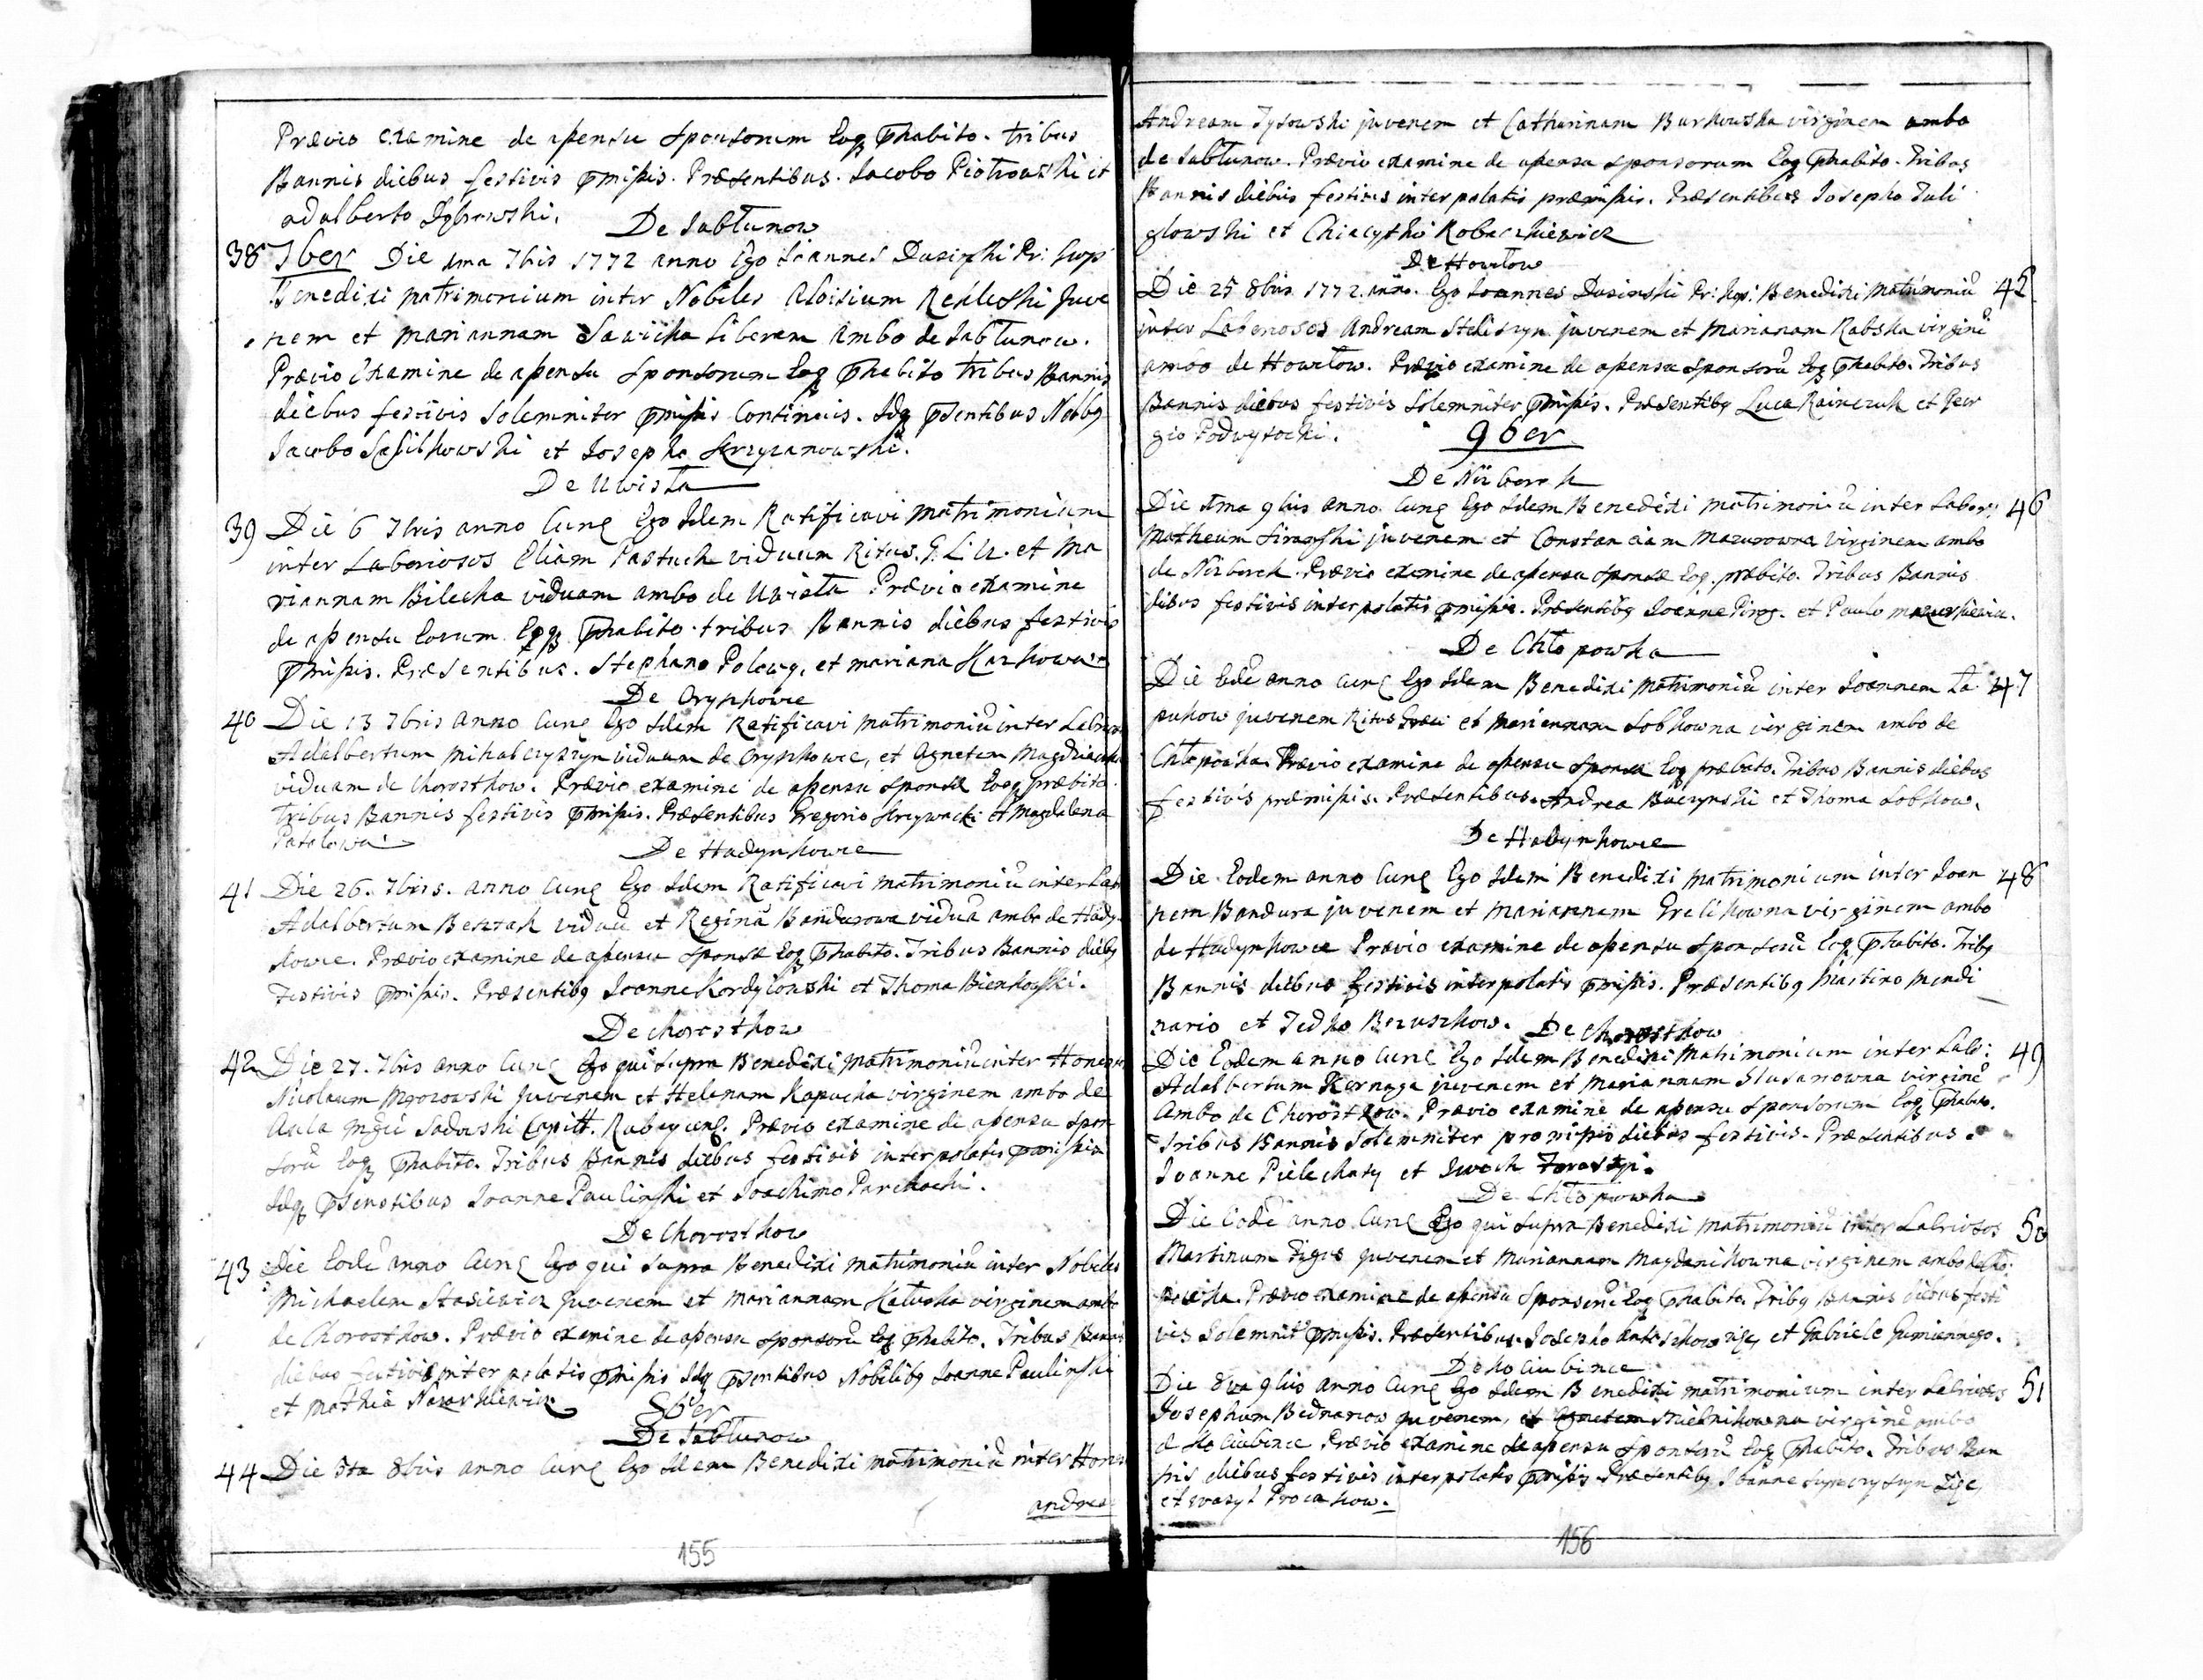 Prævio examine de apensu Sponsorum Eoq phabito. Tribus
Bannis diebus festivis pmissis. Præsentibus. Jacobo Piotrowski et
adalberto
De Jabłunow
38 7ber Die 1ma 7bis 1772 anno Ego Joannes Dusinski Pr:
Benedixi matrimonium inter Nobiles Aloisium Rekleski Juve
nem et mariannam Sawicka liberam ambo de Jabłunow.
Prævio Examine de apensu Sponsorum Eoq phabito tribus Bannis
diebus festivis Solemniter pmissis Continuis. Idq psentibus Nobbq
Jacobo et Josepho Krzyzanowski.
De Uwisła
39 Die 6 7bris anno Cure Ego Idem Ratificavi matrimonium
inter Laboriosos Eliam Pastuch viduum Ritus. G. L. U. et Ma
riannam Bilecka viduam ambo de Uwisła Prævio examine
de apensu Eorum Eoq phabito. tribus Bannis diebus festivis
pmissis. Præsentibus. Stephano Polowy, et mariana
De Oryszkowce
40 Die 13 7bris anno Cure Ego Idem Ratificavi matrimoniu inter
Adalbertum Michalczyszyn viduum de Oryszkowce, et Agnetem
viduam de Chorostkow. Prævio examine de apensu Sponsæ Eoq præbito
Tribus Bannis festivis pmissis. Præsentibus Gregorio et Magdalena
De Hadynkowce
41 Die 26. 7bris. anno Cure Ego Idem Ratificavi matrimoniu inter Lab
Adalbertum Besztak viduu et Reginu Bandurowa vidua ambo de Hady
kowce. Prævio examine de apensu Sponsæ Eoq phabito. Tribus Bannis diebq
Festivis pmissis. Præsentibq Joanne et Thoma Bienkoski.
De Chorostkow
42 Die 27. 7bis anno Cure Ego qui supra Benedixi matrimoniu inter
Nicolaum Mrozowski Juvenem et Helenam Kapucka virginem ambo de
Aula Sadowski Capitt. Prævio examine de apensu Spon
soru Eoq phabito. Tribus Bannis diebus festivis interpolatis pmissis
Idq psenstibus Joanne Paulinski et Joachimo
De Chorostkow
43 Die Eode anno Cure Ego qui supra Benedixi matrimoniu inter Nobiles
Michaelem Stasiewicz Juvenem et mariannam Kałuska virginem ambo
de Chorostkow. Prævio examine de apensu Sponsoru Eoq phabito. Tribus
diebus festivis interpolatis pmissis Idq psentibus Nobilibq Joanne Paulinski
et mathia
8ber
De Jabłunow
44 Die 5ta 8bris anno Cure Ego Idem Benedixi matrimoniu inter
andrea
155
Andream Tysowski juvenem et Catharinam Burkowska virginem ambo
de Jabłunow. Prævio examine de apensu Sponsorum Eoq phabito. Tribus
Bannis diebus festivis interpolatis præmissis. Præsentibus Josepho Tuli
głowski et
De Howiłow
Die 25 8bris 1772. anno. Ego Joannes Dusinski Pr: Benedixi Matrimoniu 45
inter Laboriosos Andream juvenem et Mariannam Rabska virgine
ambo de Howiłow. Prævio examine de apensu Sponsoru Eoq phabito. Tribus
Bannis diebus festivis Solemniter pmissis. Præsentibq Luca et Geor
gio Podwysocki.
9ber
De Niżborek
Die 1ma 9bris anno. Cure Ego Idem Benedixi matrimoniu inter Labor: 46
Matheum juvenem et Constanciam Mazurowna Virginem ambo
de Niżborek. Prævio examine de apensu Sponsæ Eoq. præbito. Tribus Bannis
dibus festivis interpolatis pmissis. Præsentibq Joanne Pirog. et Paulo
De Chłopowka
Die Eode anno Cure Ego Idem Benedixi Matrimoniu inter Joannem Ła 47
pukow juvenem Ritus et mariannam Sobkowna virginem ambo de
Chłopowka. Prævio examine de apensu Sponsæ Eoq præbito. Tribus Bannis diebus
festivis præmissis. Præsentibus. Andrea Buczynski et Thoma Sobkow.
De Hadynkowce
Die Eodem anno Cure Ego Idem Benedixi matrimonium inter Joan 48
nem Bandura juvenem et Mariannam Grelikowna virginem ambo
de Hadynkowce Prævio examine de apensu Sponsoru Eoq phabito. Tribq
Bannis diebus festivis interpolatis pmissis. Præsentibq Martino Mendi
nario et Fedko Bezuszkow.
De Chorostkow
Die Eodem anno Cure Ego Idem Benedixi Matrimonium inter Lab: 49
Adalbertum Kernaga juvenem et Mariannam Slusarowna virgine
Ambo de Chorostkow. Prævio examine de apensu Sponsorum Eoq phabito.
Tribus Bannis Solemniter promissis diebus festivis. Præsentibus.
Joanne Pielechaty et Iwach
De Chłopowka
Die Eode anno Cure Ego qui supra Benedixi matrimoniu inter Labriosos 50
Martinum juvenem et Mariannam virginem ambo de Chło
powka. Prævio examine de apensu Sponsoru Eoq phabito. Tribq Bannis dibus festi
vis Solemnit pmissis. Præsentibus. Josepho et Gabriele Gumiennego.
De Kociubince
Die 8va 9bris anno Cure Ego Idem Benedixi matrimonium inter Labriosos 51
Josephum Bednarow juvenem, et Agnetem Mielnikowna virgine ambo
d Kociubince Prævio examine de apensu Sponsoru Eoq phabito. Tribus Ban
nis diebus festivis interpolatis pmissis Præsentibq Joanne
et wasyl Procakow.
156